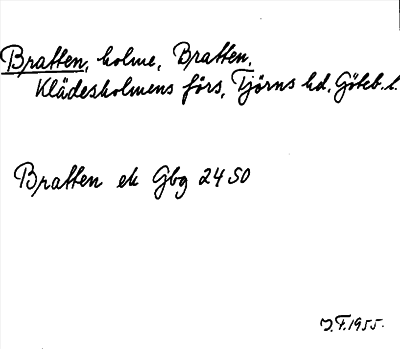 Bratten, holme, Bratten,
Klädesholmens förs, Tjörns hd, Göteb. l.
Bratten ek Gbg 24 SO
J.F. 1955.